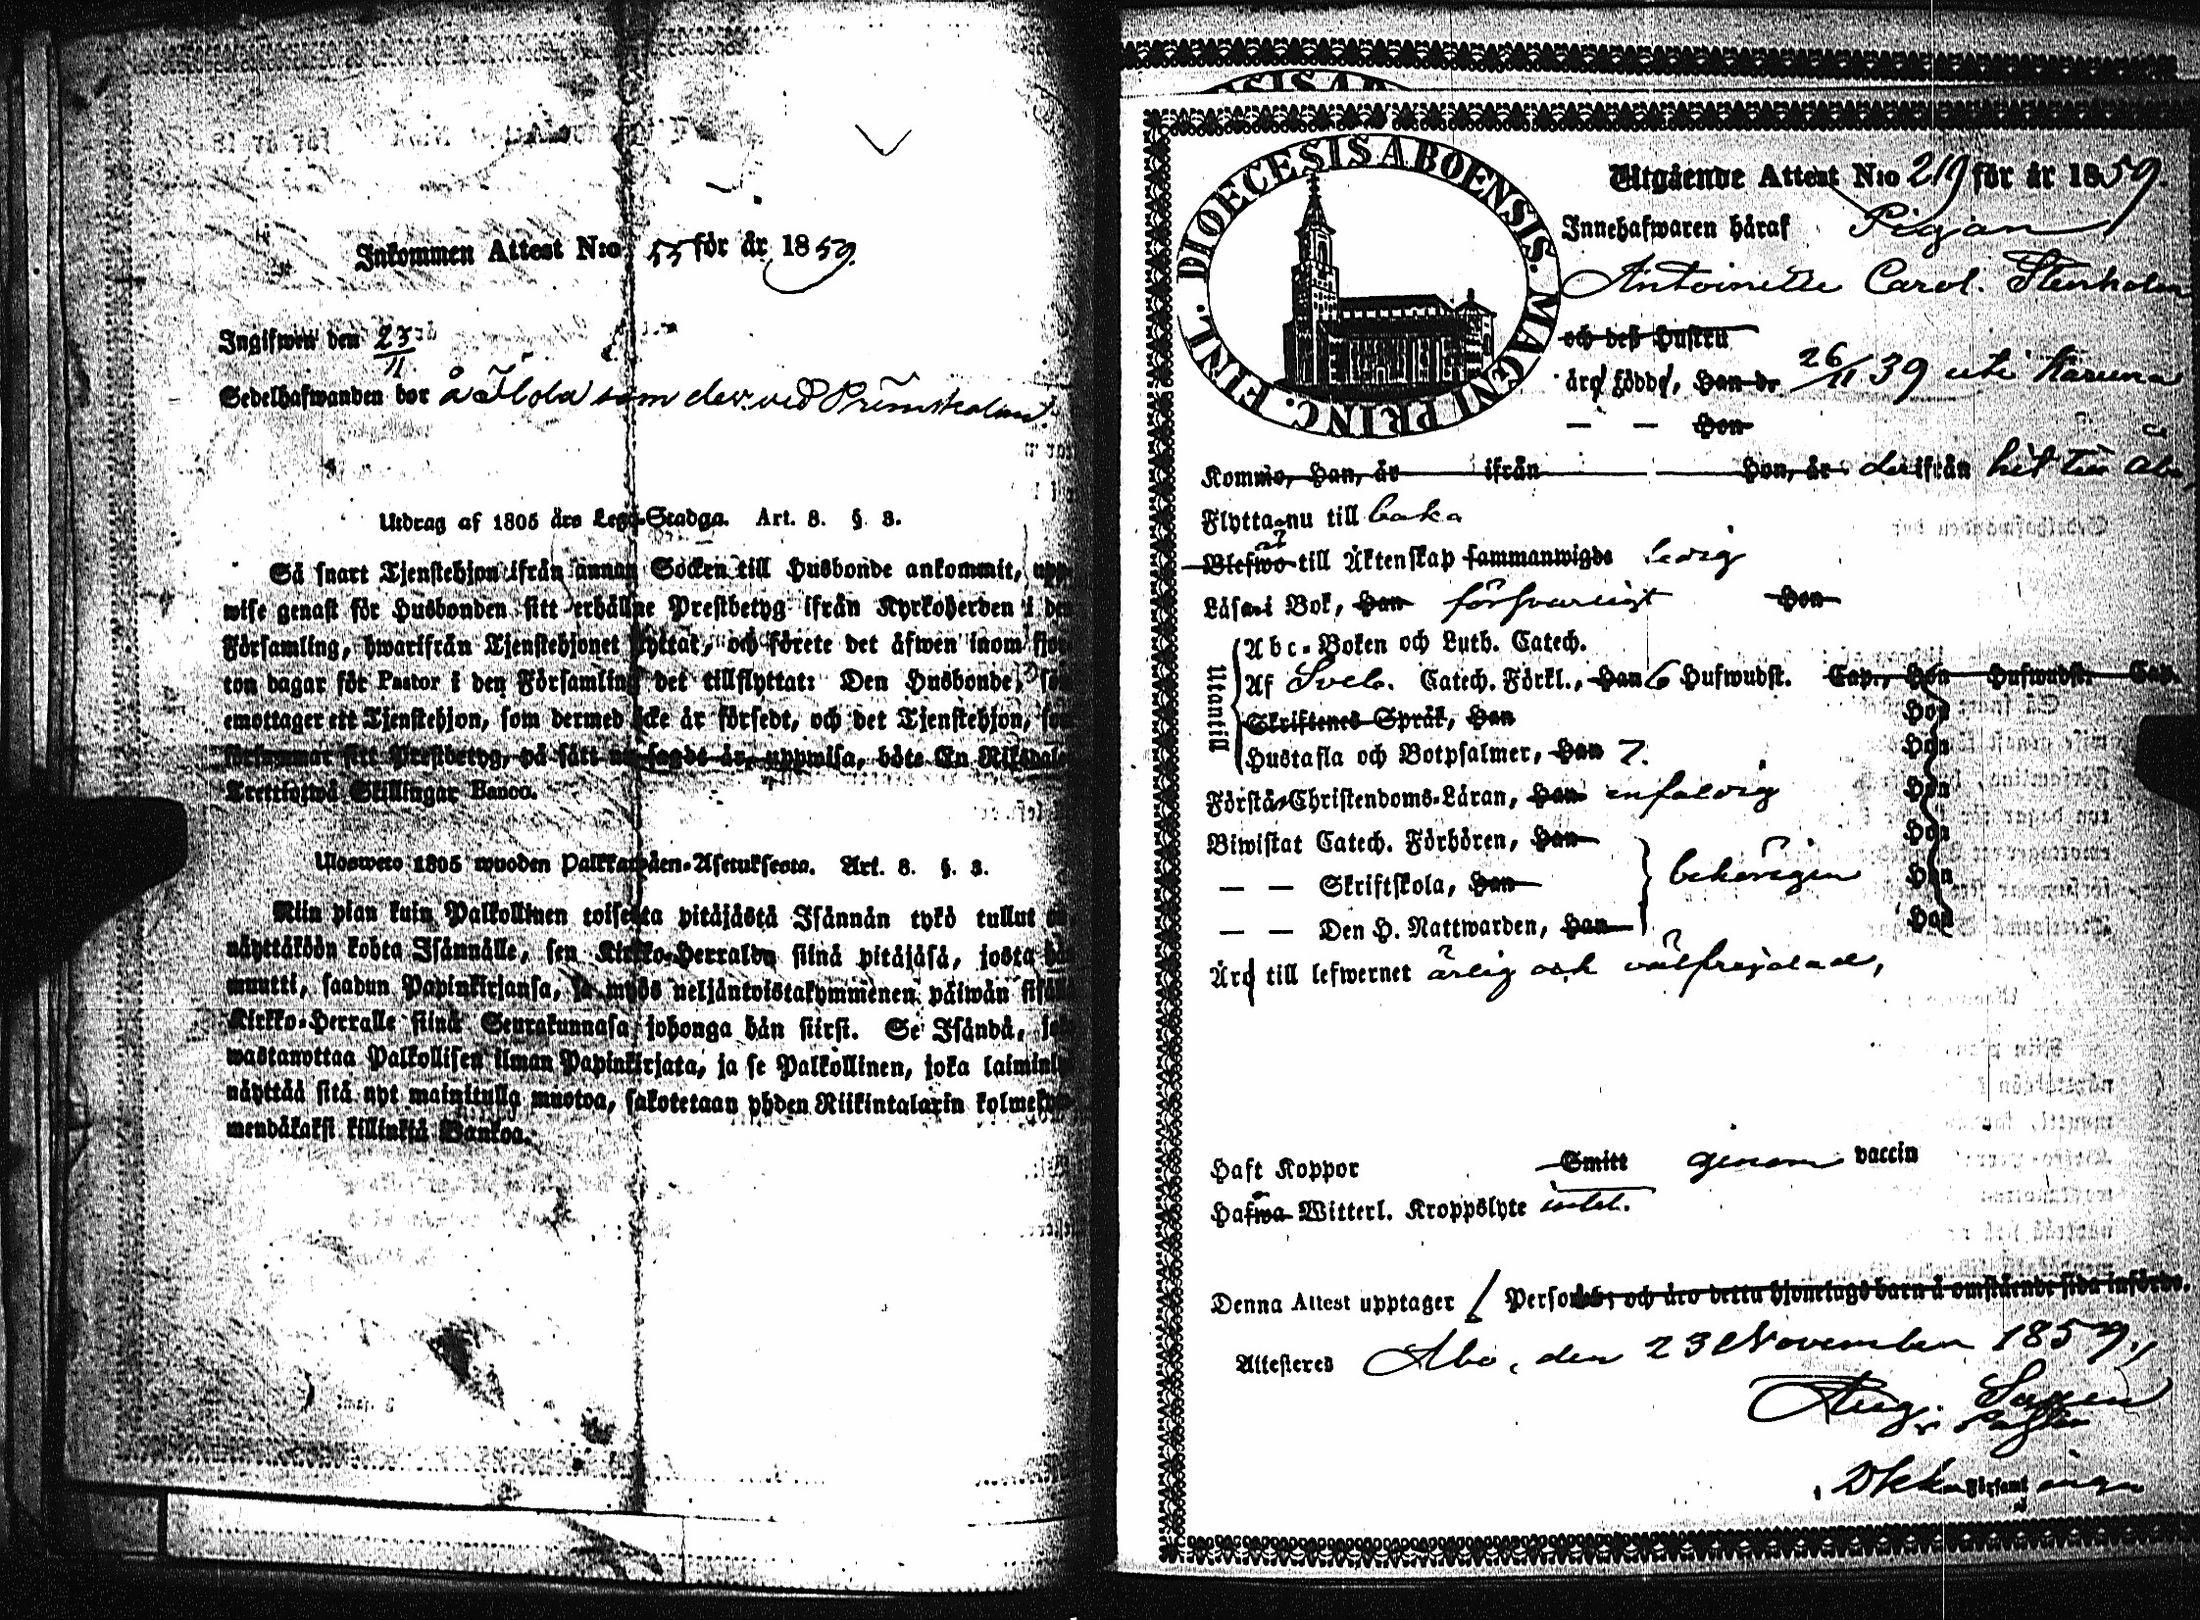 Inkommen Attest N:o 55 för år 1859.
Ingifwen den 23/11
Sedelhafwanden bor å
Utdrag af 1805 års Lego-Stadga. Art. 8. §. 3.
Så snart Tjenstehjon ifrån annan Socken till Husbonde ankommit, upp-
wise genast för Husbonden sitt erhållne Prestbetyg ifrån Kyrkoherden i den
Församling, hwarifrån Tjenstehjonet flyttat, och förete det äfwen inom fjor-
ton dagar för Pastor i den Församling det tillflyttat: Den Husbonde, som
emottager ett Tjenstehjon, som dermed icke är försedt, och det Tjenstehjon, som
försummar sitt Prestbetyg, på sätt nu sagdt är, uppwisa, böte En Riksdaler
Trettiotwå Skillingar Banco.
Ulosweto 1805 wuoden Palkkawäen-Asetuksesta. Art. 8. §. 3.
Niin pian kuin Palkollinen toisesta pitäjästä Isännän tykö tullut on
näyttäköön kohta Isännälle, sen Kirkko-Herralda siinä pitäjäsä, josta hän
muutti, saadun Papinkirjansa, ja myös neljäntoistakymmenen päiwän sisällä
Kirkko-Herralle siinä Seurakunnasa johonga hän siirsi. Se Isändä, joka
wastanottaa Palkollisen ilman Papinkirjata, ja se Palkollinen, joka laiminlyö
näyttää sitä nyt mainitulla muotoa, sakotetaan yhden Riikintalarin kolmekym-
mendäkaksi killinkiä Bankoa.
DIOECESIS ABOENSIS. MAGNI PRINC. FINL.
Utgående Attest N:o 219 för år 1859.
Innehafwaren häraf Pigan
Antoinette Carol. Stenholm
och deß Hustru
äro födde, Han d. 26/11 39 uti Karuna
— — Hon
Kommo, Han, år ifrån Hon, år derifrån hit till Åbo,
Flytta nu till baka
Blefwo till Äktenskap sammanwigde ledig
Läsa i Bok, Han försvarligt Hon
Utantill
Abc-Boken och Luth. Catech.
Af Sveb. Catech. Förkl., Han 6 Hufwudst. Cap., Hon Hufwudst. Cap.
Skriftenes Språk, Han Hon
Hustafla och Botpsalmer, Han 7. Hon
Förstå Christendoms-Läran, Han enfaldig Hon
Biwistat Catech. Förhören, Han Hon
— — Skriftskola, Han behörigen Hon
— — Den H. Nattwarden, Han Hon
Äro till lefwernet ärlig och välfrejdad,
Haft Koppor Smitt genom vaccin
Hafwa Witterl. Kroppslyte intet.
Denna Attest upptager 1 Personer och äro detta hjonelags barn å omstående sida införde.
Attesteras Åbo, den 23 November 1859.
Aug.
Församl